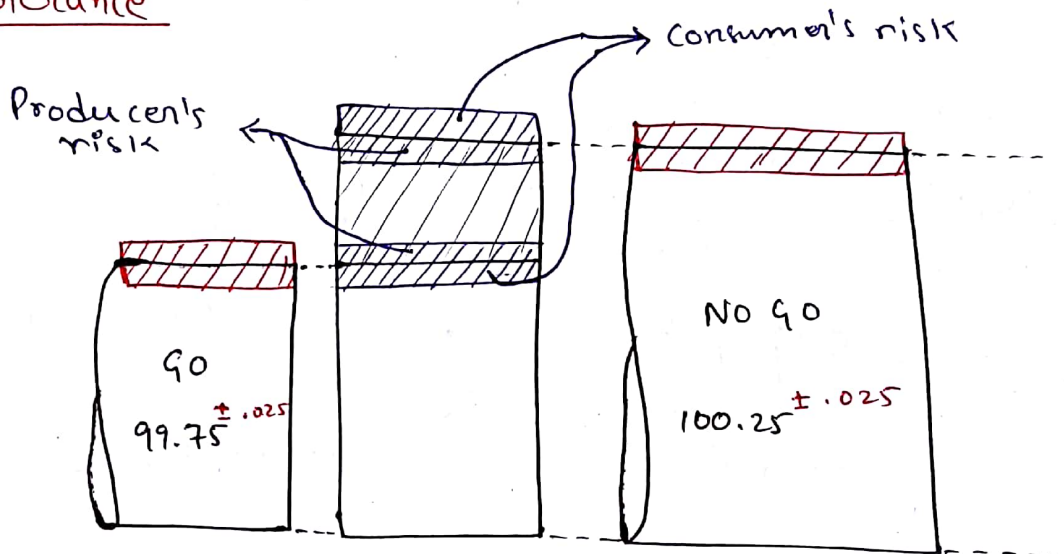 Consumer's risk
Producer's
risk
GO
99.75 ± .025
NO GO
100.25 ± .025